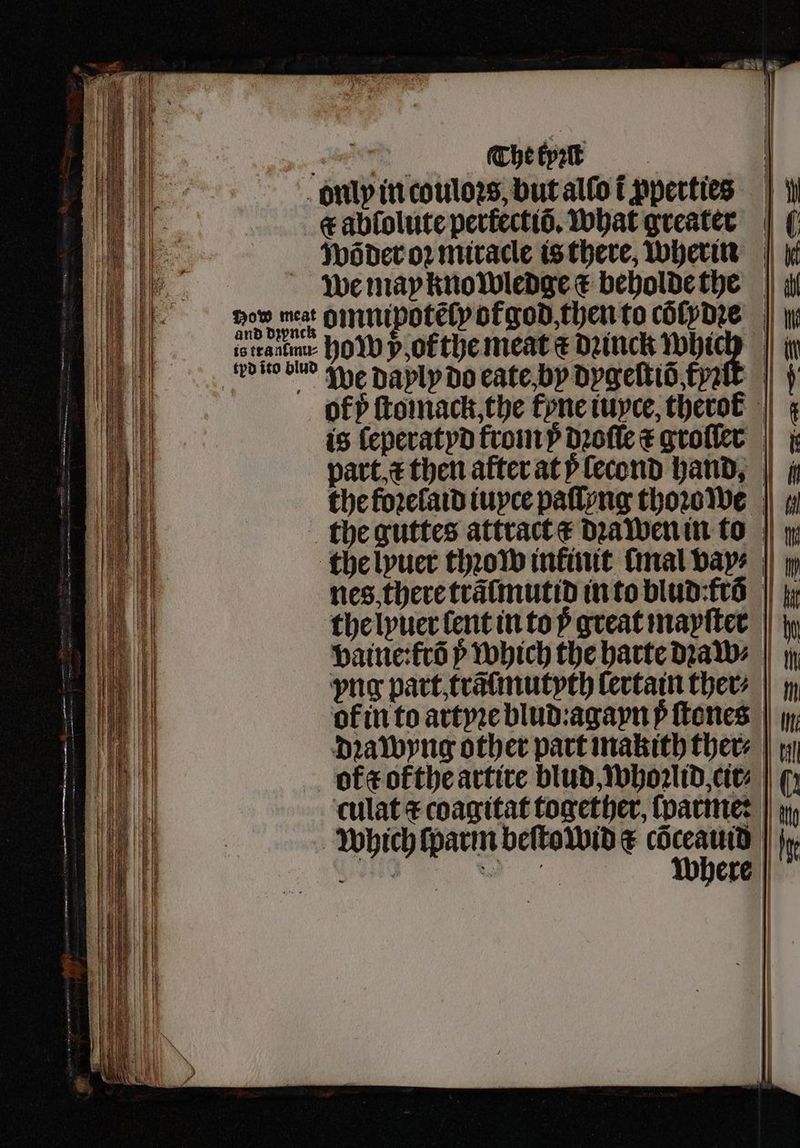 The fyrst
only in coulors, but also ī pperties
& absolute perfectiō. What greater
Wōder or miracle is there, Wherin
We may knoWledge & beholde the
omnipotēsy of god, then to cōsydre
hoW yͤ, of the meat & drinck Which
We dayly do eate, by dygestiō, fyrst
of yͤ stomack, the fyne iuyce, therof
is seperatyd from yͤ drosse & grosser
part, & then after at yͤ second hand,
the foresaid iuyce passyng thoroWe
the guttes attract & draWen in to
the lyuer throW infinit smal vay⸗
nes, there trāsmutid in to blud: frō
the lyuer sent in to yͤ great mayster
vaine: frō yͤ Which the harte draW⸗
yng part, trāsmutyth sertain ther⸗
of in to artyre blud: agayn yͤ stones
draWyng other part makith ther⸗
of & of the artire blud, Whorlid, cir⸗
culat & coagitat together, sparme:
Which sparm bestoWid & cōceauid
Where
HoW meat
and drynck
is transmu⸗
tyd īto blud